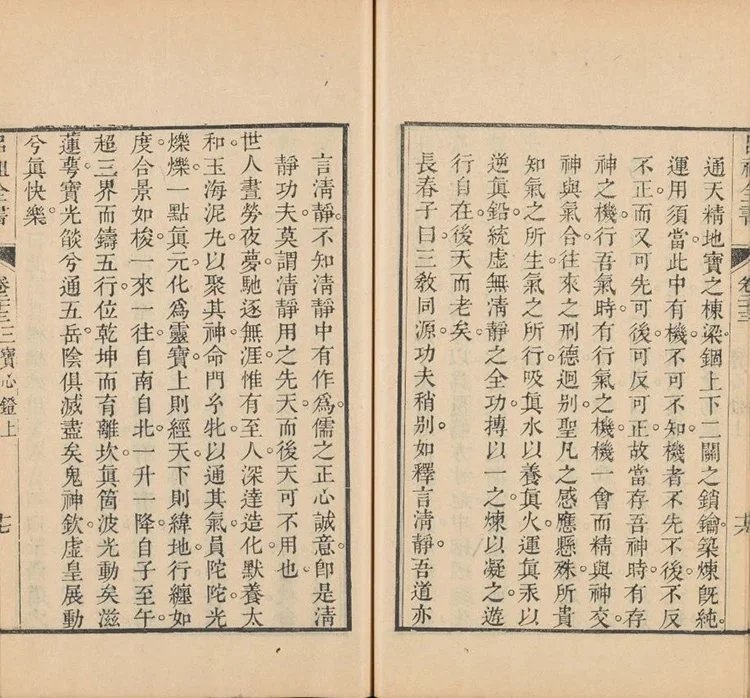 通天精地寶之棟梁錮上下二關之鎖鑰築煉旣純
運用須當此中有機不可不知機者不先不後不反
不正而又可先可後可反可正故當存吾神時有存
神之機行吾氣時有行氣之機機一會而精與神交
神與氣合往來之刑德迴别聖凡之感應懸殊所貴
知氣之所生氣之所行吸眞水以養眞火運眞汞以
逆眞鉛統虛無淸靜之全功摶以一之煉以凝之遊
行自在後天而老矣
長春子曰三敎同源功夫稍别如釋言淸靜吾道亦
言淸靜不知淸靜中有作爲儒之正心誠意卽是淸
靜功夫莫謂淸靜用之先天而後天可不用也
世人晝勞夜夢馳逐無涯惟有至人深達造化默養太
和玉海泥丸以聚其神命門𤣥牝以通其氣員陀陀光
爍爍一點眞元化爲靈寶上則經天下則緯地行纏如
度合景如梭一來一往自南自北一升一降自子至午
超三界而鑄五行位乾坤而育離坎眞箇波光動矣滋
蓮蕚寶光燄兮通五岳陰俱滅盡矣鬼神欽虛皇展動
兮眞快樂
呂祖全書 三寶心鐙上